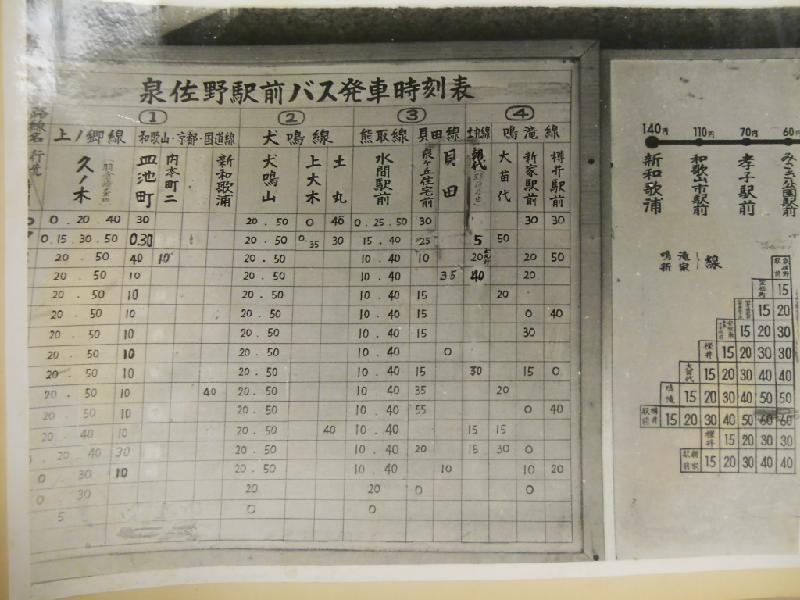 泉佐野駅前バス発車時刻表
① ② ③ ④
路線名 上ノ郷線 和歌山・京都・国道線 犬鳴線 熊取線 貝田線 鳴滝線
久ノ木 皿池町 内本町二 新和歌浦 犬鳴山 上大木 土丸 水間駅前 貝田 大苗代 新家駅前 樽井駅前
0.20.40 30 20.50 0 40 0.25.50 30 30 30
0.15.30.50 0.30 20.50 0.35 30 15.40 25 5 50
20.50 40 10 20.50 10.40 10 20 20 50
20.50 10 20.50 10.40 35 40 20
20.50 10 20.50 10.40 15 20
20.50 10 20.50 10.40 15 0 40
20.50 10 20.50 10.40 15 30
20.50 10 20.50 10.40 0
20.50 10 20.50 10.40 15 30 15 0
20.50 10 40 20.50 10.40 35 20
20.50 10 20.50 10.40 55 0 40
20.40 10 20.50 40 10.40 15 15
20.40 30 20.50 10.40 20 15 30 0
0.30 10 20.50 10.40 10 10 20
0.30 20 20 0 0
5 0 0
140円 110円 70円 60円
新和歌浦 和歌山市駅前 孝子駅前 みさき公園駅前
鳴滝 新家 線
15
15 20
15 20 30
15 20 30
樽井 15 20 30 30
大苗代 15 20 30 40 40
鳴滝 15 20 30 40 50 50
樽井駅前 15 20 30 40 50 60 60
樽井 15 20 30 30
新家駅前 15 20 30 40 40